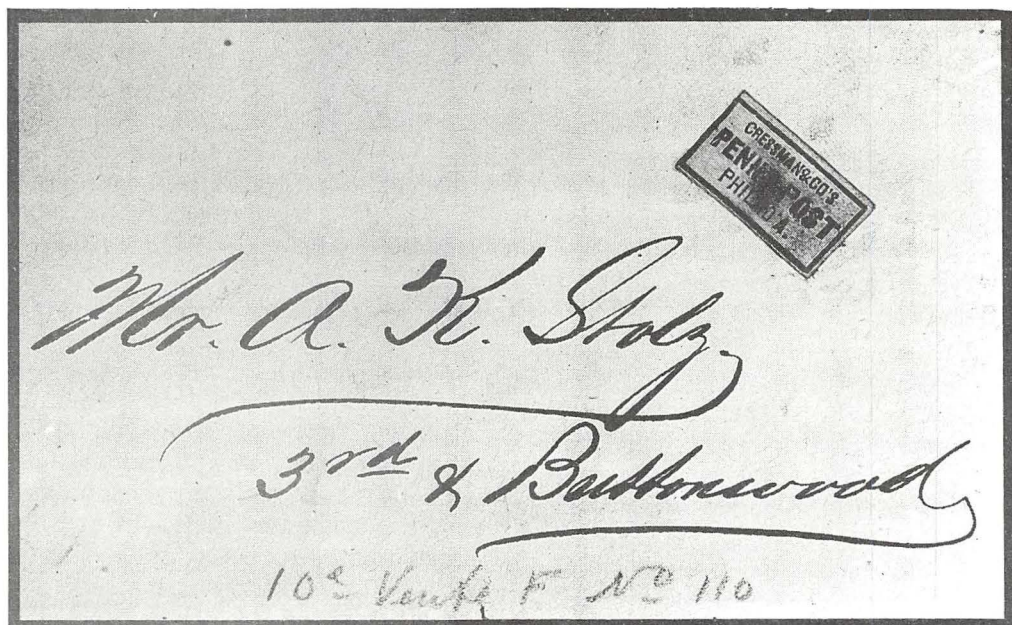 CRESSMAN & CO'S
PENNY POST
PHILAD'A.
Mr. A. K. Stolz.
3rd & Buttonwood
10e Vente F No 110